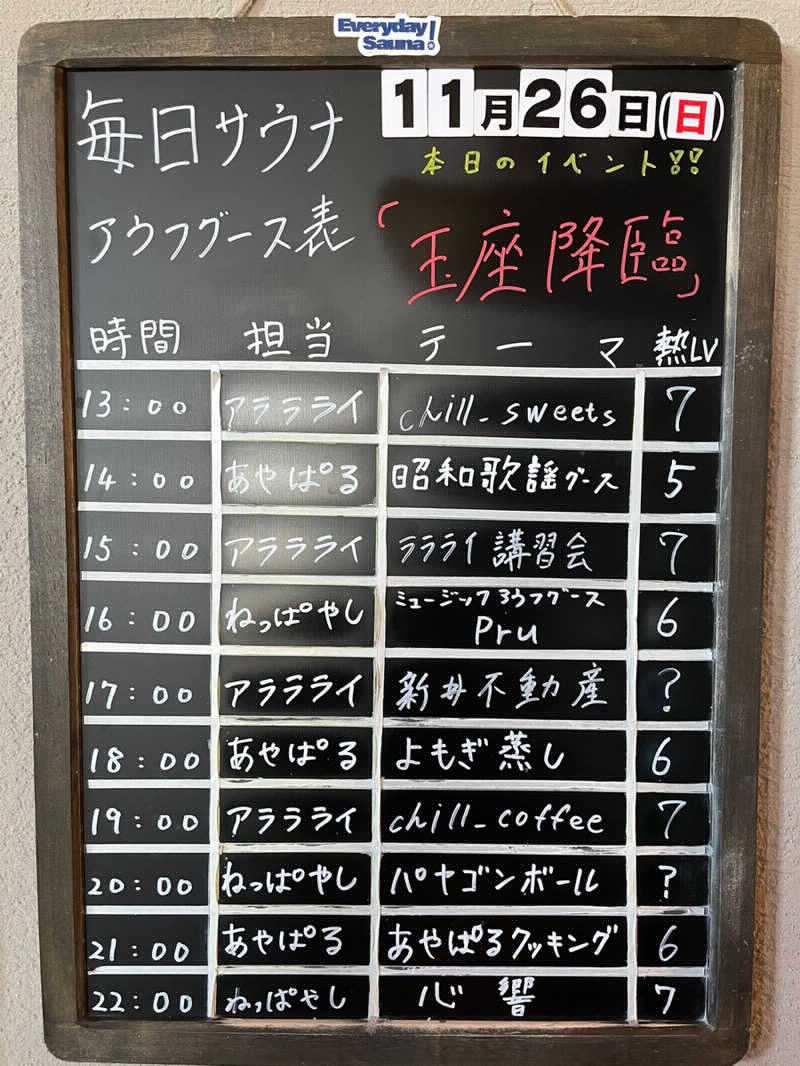 Everyday
Sauna!
毎日サウナ
11月26日(日)
本日のイベント!!
アウフグース表
「玉座降臨」
時間 担当 テーマ 熱LV
13:00 アラララライ chill_sweets 7
14:00 あやぱる 昭和歌謡グース 5
15:00 アララライ ララライ講習会 7
16:00 ねっぱやし ミュージックアウフグース
Pru 6
17:00 アララライ 新井不動産 ?
18:00 あやぱる よもぎ蒸し 6
19:00 アララライ chill_coffee 7
20:00 ねっぱやし パヤゴンボール ?
21:00 あやぱる あやぱるクッキング 6
22:00 ねっぱやし 心響 7